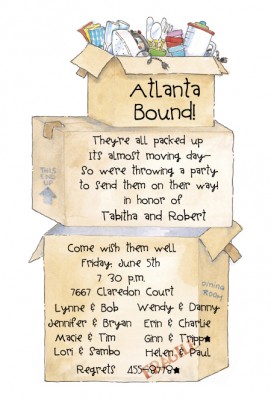 Atlanta
Bound!
They're all packed up
It's almost moving day—
So we're throwing a party
to send them on their way!
in honor of
Tabitha and Robert
THIS
END
UP
Come wish them well
Friday, June 5th
7:30 p.m.
7667 Claredon Court
DINING
ROOM
Lynne & Bob Wendy & Danny
Jennifer & Bryan Erin & Charlie
Macie & Tim Ginn & Tripp
Lori & Sambo Helen & Paul
FRAGILE
Regrets 455-8778